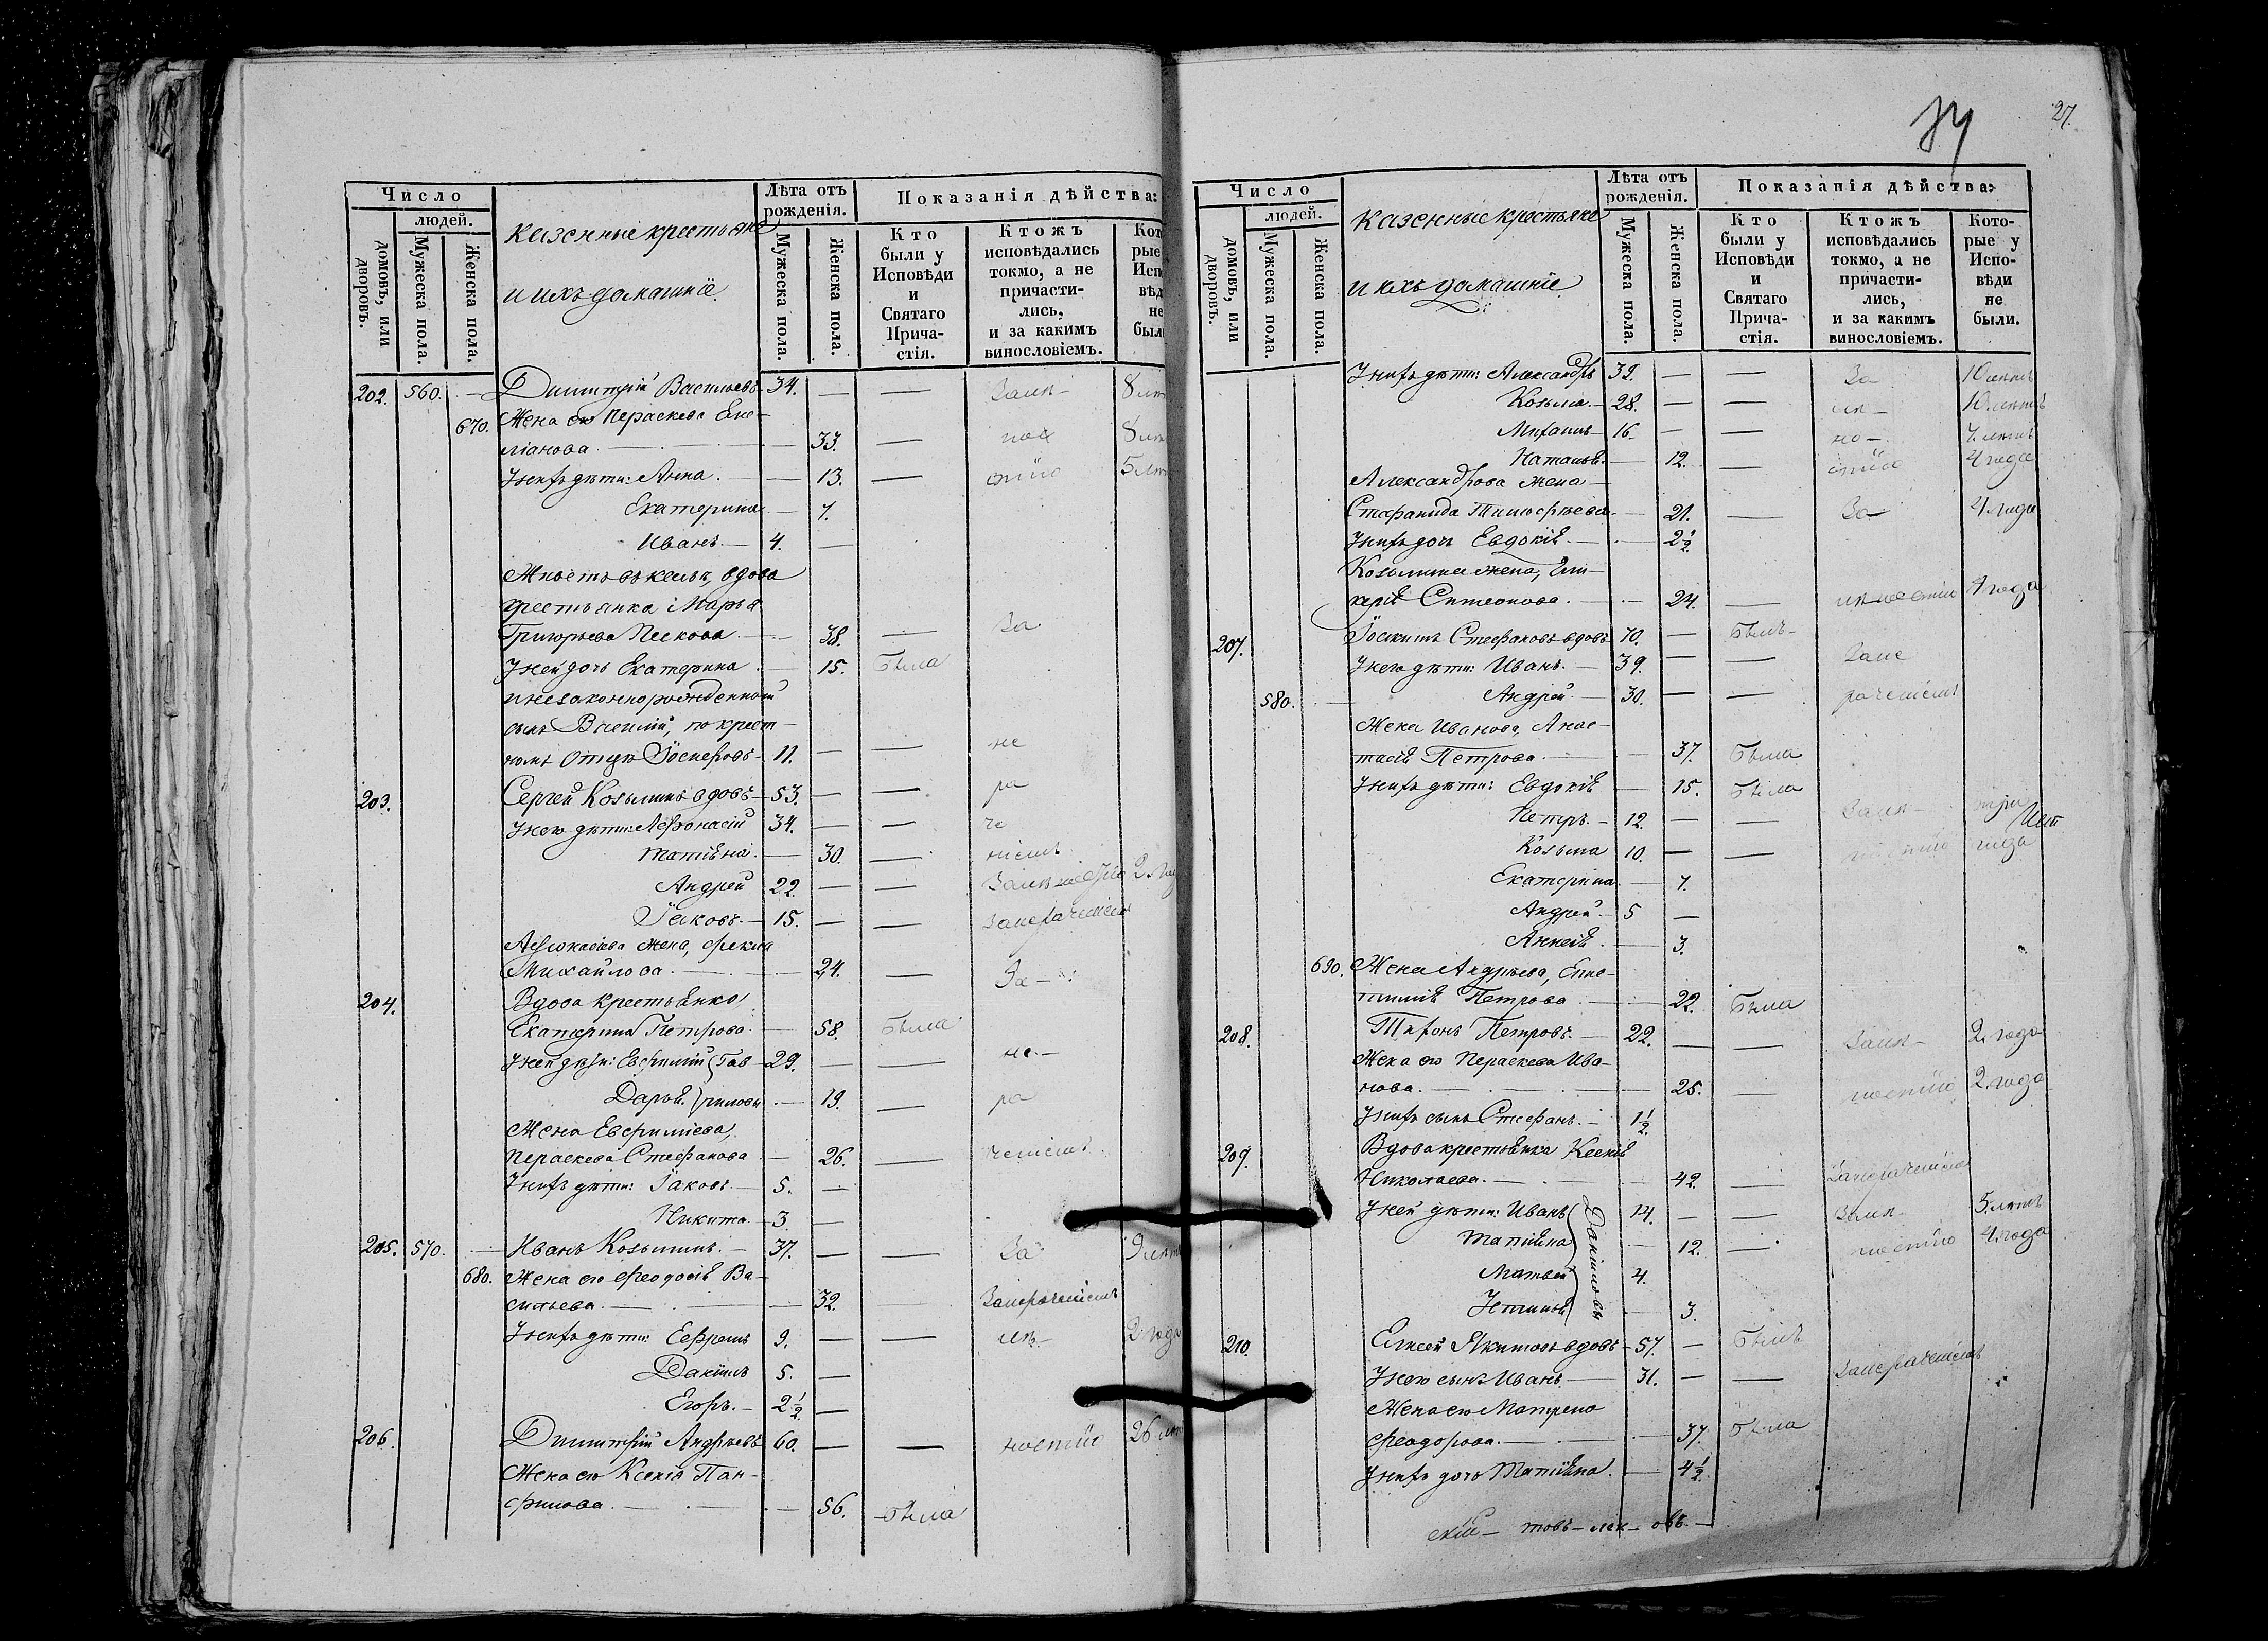 Число
людей.
домовъ, или дворовъ.
Мужеска пола.
Женска пола.
казенные крестьяне
и ихъ домашніе.
Лѣта отъ рожденія.
Мужеска пола.
Женска пола.
Показанія дѣйства:
Кто были у Исповѣди и Святаго Прича-стія.
Ктожъ исповѣдались токмо, а не причасти-лись, и за какимъ винословіемъ.
202. 560. — Димитрій Васильевъ 34. — — Залѣ-
670. Жена его Параскева Еме-
ліанова. — 33. —
У нихъ дѣти: Анна. — 13. — стію
Екатерина — 7.
Иванъ. — 4. —
Живетъ въ кельи, вдова
крестьянка Марья
Григорьева Пескова — 38. — За
У ней дочь Екатерина — 15. Была
и незаконнорожденный
сынъ Василій, по крест-
номъ отцѣ Іосифовъ — 11. — — не
203. Сергей Козьминъ вдовъ — 53. — — ра
У него дѣти: Афонасій 34. — — че
Татіана. — 30. — ніемъ
Андрей 22. — —
Іаковъ. — 15. — — Занераченіемъ
Афонасіева жена, Фекла
Михайлова. — 24. — За —
204. Вдова крестьянка
Екатерина Петрова. — 58. Была
У ней дѣти: Евфимій Гав- 29. — — не. —
Дарья. риловы — 19. — ра
Жена Евфиміева,
Параскева Стефанова — 26. — ченіемъ
У нихъ дѣти: Іаковъ. — 5. —
Никита. — 3. —
205. 570. — Иванъ Козьминъ. — 37. — — За 9 лѣтъ
680. Жена его Феодосія Ва-
сильева. — 32. — Занераченіемъ
У нихъ дѣти: Ефремъ 9. — — лѣ- 2 года
Даніилъ 5. —
Егоръ. — 2 1/2. —
206. Димитрій Андреевъ 60. — — ностію 26 лѣ
Жена его Ксенія Пан-
филова. — 56. Была
27.
Число
людей.
домовъ, или дворовъ.
Мужеска пола.
Женска пола.
казенные крестьяне
и ихъ домашніе.
Лѣта отъ рожденія.
Мужеска пола.
Женска пола.
Показанія дѣйства:
Кто были у Исповѣди и Святаго Прича-стія.
Ктожъ исповѣдались токмо, а не причасти-лись, и за какимъ винословіемъ.
Кото-рые у Испо-вѣди не были.
У нихъ дѣти: Александръ 32. — — За 10 лѣтъ
Козьма. — 28. — — лѣ- 10 лѣтъ
Михаилъ — 16. — — но- 7 лѣтъ
Наталья. — 12. — стію 4 года
Александрова жена —
Стефанида Тимофеева. — 21. — За 4 года
У нихъ дочь Евдокія. — 2 1/2.
Козьмина жена, Гли-
керія Симеонова. — 24. — лѣностію 4 года
207. Іоакимъ Стефановъ вдовъ 70. — Былъ-
У него дѣти: Иванъ. — 39. — — Зане
580. — Андрей. — 30. — — раченіемъ
Жена Иванова, Анас-
тасія Петрова. — 37. Была
У нихъ дѣти: Евдокія — 15. Была
Петръ. — 12. — — Залѣ- три
Козьма 10. — — ностію года
Екатерина. — 7.
Андрей. — 5 —
Анисія. — 3.
690. Жена Андреева, Епис-
тимія Петрова — 22. Была
208. Тихонъ Петровъ. — 22. — — Залѣ- 2. года
Жена его Параскева Ива-
нова. — 25. — ностію 2. года
У нихъ сынъ Стефанъ. — 1 1/2.
209. Вдова крестьянка Ксенія
Николаева. — 42. — Занераченіемъ
У ней дѣти: Иванъ 14. — — Залѣ- 5 лѣтъ
Татіана — 12. — ностію 4 года
Матвей 4.
Устинья — 3.
Даніиловы
210. Елисей Якимовъ вдовъ — 57. — Былъ
У него сынъ Иванъ. — 31. — — Занераченіемъ
Жена его Матрена
Феодорова. — 37. Была
У нихъ дочь Татіана. — 4 1/2.